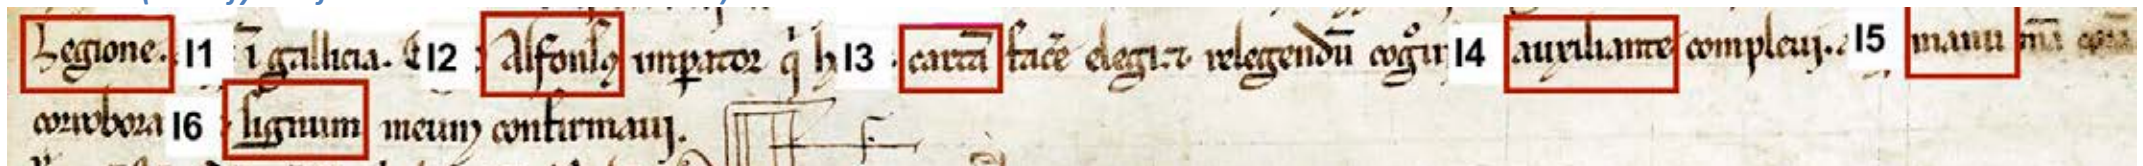 Legione. I1 ī gallicia. I2 Alfonsꝰ imꝑator q̇ h I3 cartā facē elegi.⁊ relegendū cogͦui I4 auxiliante compleui. I5 manu mā
corrobora I6 signum meum confirmaui.